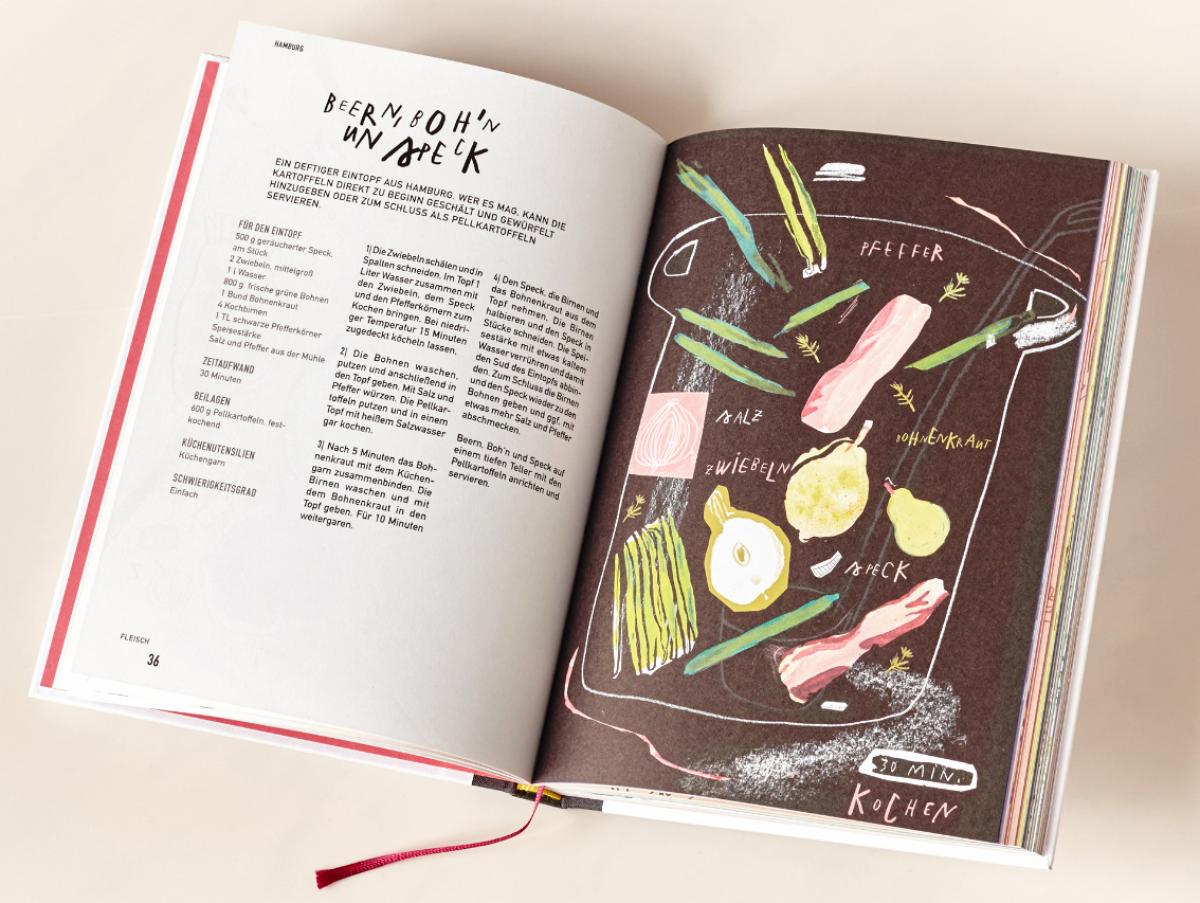 HAMBURG
BEERN, BOH'N
UN SPECK
EIN DEFTIGER EINTOPF AUS HAMBURG. WER ES MAG, KANN DIE
KARTOFFELN DIREKT ZU BEGINN GESCHÄLT UND GEWÜRFELT
HINZUGEBEN ODER ZUM SCHLUSS ALS PELLKARTOFFELN
SERVIEREN.
FÜR DEN EINTOPF
500 g geräucherter Speck,
am Stück
2 Zwiebeln, mittelgroß
1 l Wasser
800 g frische grüne Bohnen
1 Bund Bohnenkraut
4 Kochbirnen
1 TL schwarze Pfefferkörner
Speisestärke
Salz und Pfeffer aus der Mühle
ZEITAUFWAND
30 Minuten
BEILAGEN
600 g Pellkartoffeln, fest-
kochend
KÜCHENUTENSILIEN
Küchengarn
SCHWIERIGKEITSGRAD
Einfach
1| Die Zwiebeln schälen und in
Spalten schneiden. Im Topf 1
Liter Wasser zusammen mit
den Zwiebeln, dem Speck
und den Pfefferkörnern zum
Kochen bringen. Bei niedri-
ger Temperatur 15 Minuten
zugedeckt köcheln lassen.
2| Die Bohnen waschen,
putzen und anschließend in
den Topf geben. Mit Salz und
Pfeffer würzen. Die Pellkar-
toffeln putzen und in einem
Topf mit heißem Salzwasser
gar kochen.
3| Nach 5 Minuten das Boh-
nenkraut mit dem Küchen-
garn zusammenbinden. Die
Birnen waschen und mit
dem Bohnenkraut in den
Topf geben. Für 10 Minuten
weitergaren.
4| Den Speck, die Birnen und
das Bohnenkraut aus dem
Topf nehmen. Die Birnen
halbieren und den Speck in
Stücke schneiden. Die Spei-
sestärke mit etwas kaltem
Wasser verrühren und damit
den Sud des Eintopfs abbin-
den. Zum Schluss die Birnen
und den Speck wieder zu den
Bohnen geben und ggf. mit
etwas mehr Salz und Pfeffer
abschmecken.
Beern, Boh'n und Speck auf
einem tiefen Teller mit den
Pellkartoffeln anrichten und
servieren.
FLEISCH
36
PFEFFER
SALZ
BOHNENKRAUT
ZWIEBELN
SPECK
30 MIN.
KOCHEN